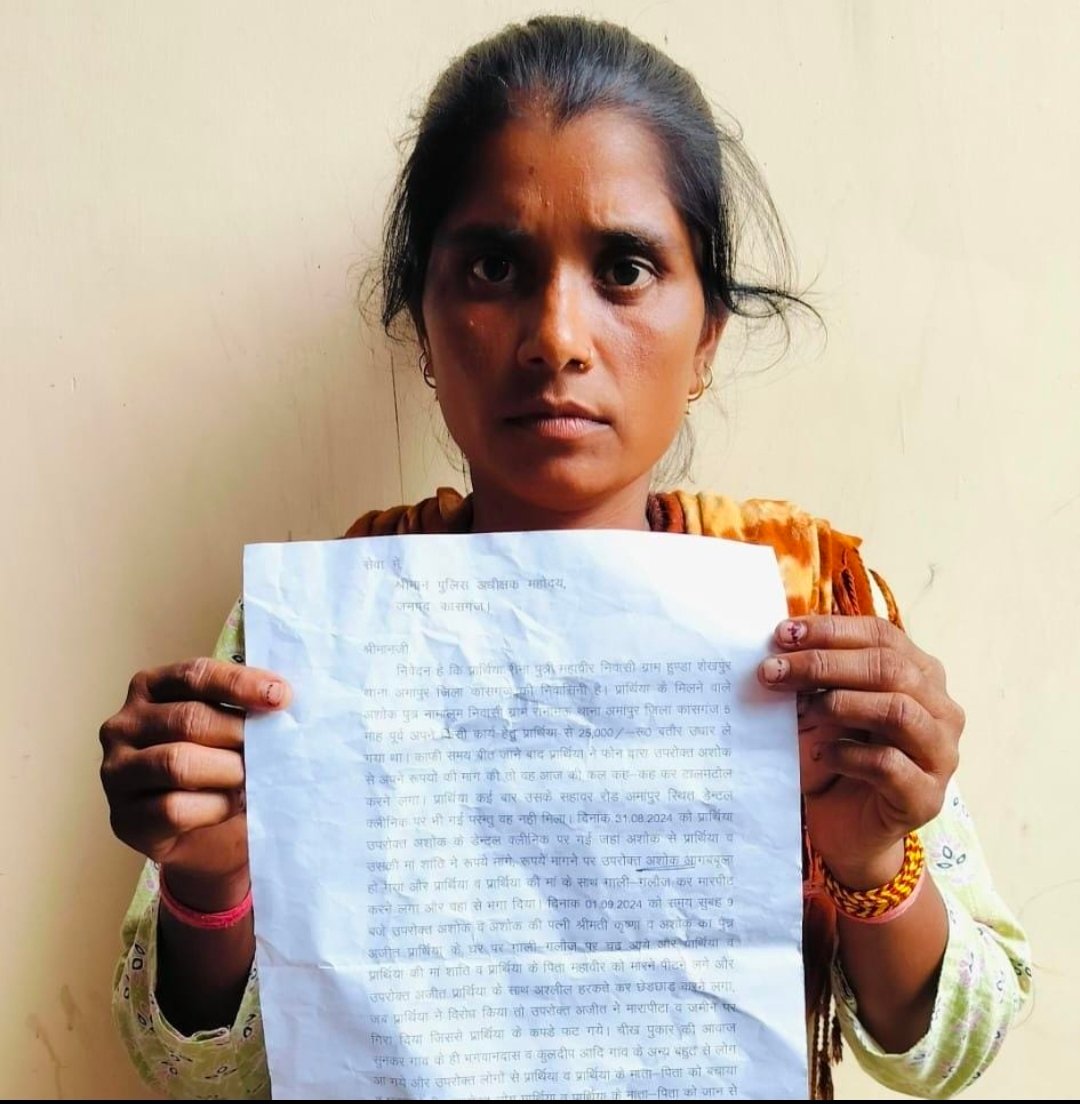 सेवा में,
श्रीमान पुलिस अधीक्षक महोदय,
जनपद कासगंज।
श्रीमानजी
निवेदन है कि प्रार्थिया पुत्री महावीर निवासी ग्राम हुण्डा शेखपुर
थाना अमांपुर जिला कासगंज की निवासिनी है। प्रार्थिया के मिलने वाले
अशोक पुत्र नामालूम निवासी ग्राम थाना अमांपुर जिला कासगंज 5
माह पूर्व अपने कार्य हेतु प्रार्थिया से 25,000/-रू0 बतौर उधार ले
गया था। काफी समय बीत जाने बाद प्रार्थिया ने फोन द्वारा उपरोक्त अशोक
से अपने रूपयो की मांग की तो वह आज की कल कह-कह कर टालमटोल
करने लगा। प्रार्थिया कई बार उसके सहावर रोड अमांपुर स्थित डेन्टल
क्लीनिक पर भी गई परन्तु वह नही मिला। दिनांक 31.08.2024 को प्रार्थिया
उपरोक्त अशोक के डेन्टल क्लीनिक पर गई जहां अशोक से प्रार्थिया व
उसकी मां शांति ने रूपये मांगे, रूपये मांगने पर उपरोक्त अशोक आगबबूला
हो गया और प्रार्थिया व प्रार्थिया की मां के साथ गाली-गलौज कर मारपीट
करने लगा और वहा से भगा दिया। दिनांक 01.09.2024 को समय सुबह 9
बजे उपरोक्त अशोक व अशोक की पत्नी श्रीमती कृष्णा व अशोक का पुत्र
अजीत प्रार्थिया के घर पर गाली-गलौज पर चढ आये और प्रार्थिया व
प्रार्थिया की मां शांति व प्रार्थिया के पिता महावीर को मारने पीटने लगे और
उपरोक्त अजीत प्रार्थिया के साथ अश्लील हरकते कर छेडछाड करने लगा,
जब प्रार्थिया ने विरोध किया तो उपरोक्त अजीत ने मारापीटा व जमीन पर
गिरा दिया जिससे प्रार्थिया के कपडे फट गये। चीख पुकार की आवाज
सुनकर गाव के ही भगवानदास व कुलदीप आदि गाव के अन्य बहुत से लोग
आ गये और उपरोक्त लोगों से प्रार्थिया व प्रार्थिया के माता-पिता को बचाया
प्रार्थिया व प्रार्थिया के माता-पिता को जान से